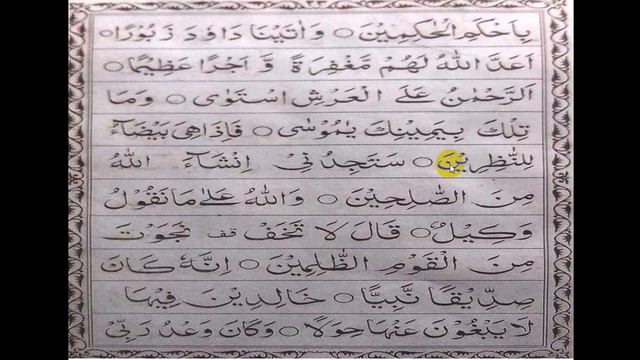 بِاَحْكَمِ الْحٰكِمِيْنَ ○ وَاٰتَيْنَا دَاوٗدَ زَبُوْرًا ○
اَعَدَّ اللّٰهُ لَهُمْ مَّغْفِرَةً وَّ اَجْرًا عَظِيْمًا ○
اَلرَّحْمٰنُ عَلَى الْعَرْشِ اسْتَوٰى ○ وَمَا
تِلْكَ بِيَمِيْنِكَ يٰمُوْسٰى ○ فَاِذَا هِىَ بَيْضَآءُ
لِلنّٰظِرِيْنَ ○ سَتَجِدُنِىْ اِنْشَآءَ اللّٰهُ
مِنَ الصّٰلِحِيْنَ ○ وَاللّٰهُ عَلٰى مَا نَقُوْلُ
وَكِيْلٌ ○ قَالَ لَا تَخَفْ قف نَجَوْتَ
مِنَ الْقَوْمِ الظّٰلِمِيْنَ ○ اِنَّهٗ كَانَ
صِدِّيْقًا نَّبِيًّا ○ خَالِدِيْنَ فِيْهَا
لَا يَبْغُوْنَ عَنْهَا حِوَلًا ○ وَكَانَ وَعْدُ رَبِّىْ